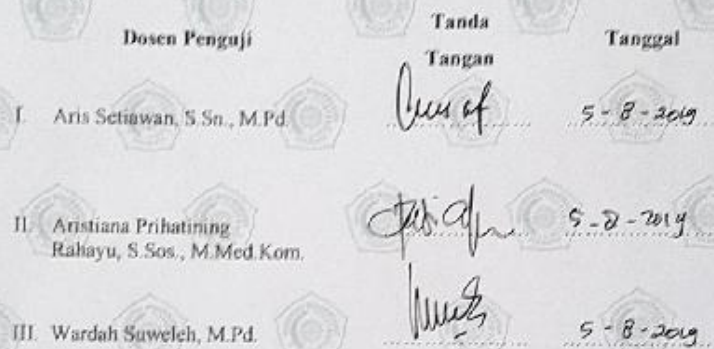 Dosen Penguji
Tanda
Tangan
Tanggal
I. Aris Setiawan, S.Sn., M.Pd 5-8-2019
II. Aristiana Prihatining
Rahayu, S.Sos., M.Med.Kom. 5-8-2019
III. Wardah Suweleh, M.Pd. 5-8-2019